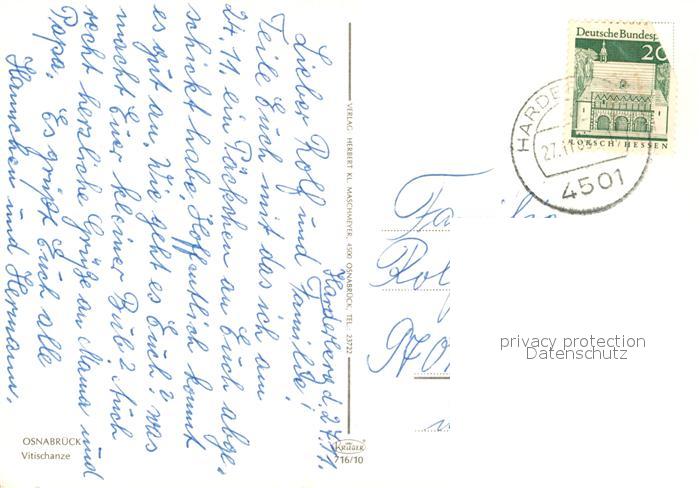 Harderberg d. 27.11.
Lieber Rolf und Familie!
Teile Euch mit das ich am
24. 11. ein Päckchen an Euch abge-
schickt habe. Hoffentlich kommt
es gut an. Wie geht es Euch? was
macht Euer kleiner Bub? Auch
recht herzliche Grüße an Mama und
Papa. Es grüßt Euch alle
Hannchen und Hermann.
OSNABRÜCK
Vitischanze
VERLAG HERBERT KL. MASCHMEYER, 4500 OSNABRÜCK, TEL. 23722
KRÜGER
716/10
Deutsche Bundesp
20
LORSCH/HESSEN
HARDE
27.11.
4501
Familie
Rol
870
privacy protection
Datenschutz